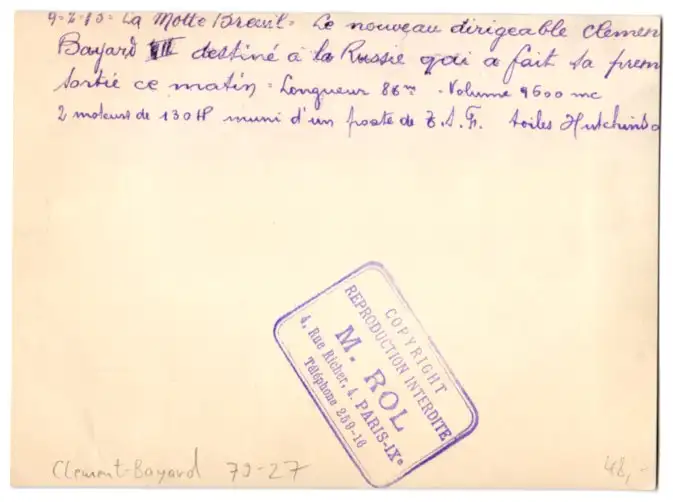 9-2-13 - La Motte Breuil - Le nouveau dirigeable Clemen
Bayard VII destiné à la Russie qui a fait sa prem
sortie ce matin - Longueur 86m - Volume 9600 mc
2 moteurs de 130 HP muni d'un poste de T.S.F. toiles Hutchinso
COPYRIGHT
REPRODUCTION INTERDITE
M. ROL
4, Rue Richer, 4. PARIS-IXe
Téléphone 259-16
Clement-Bayard 79-27
48,-